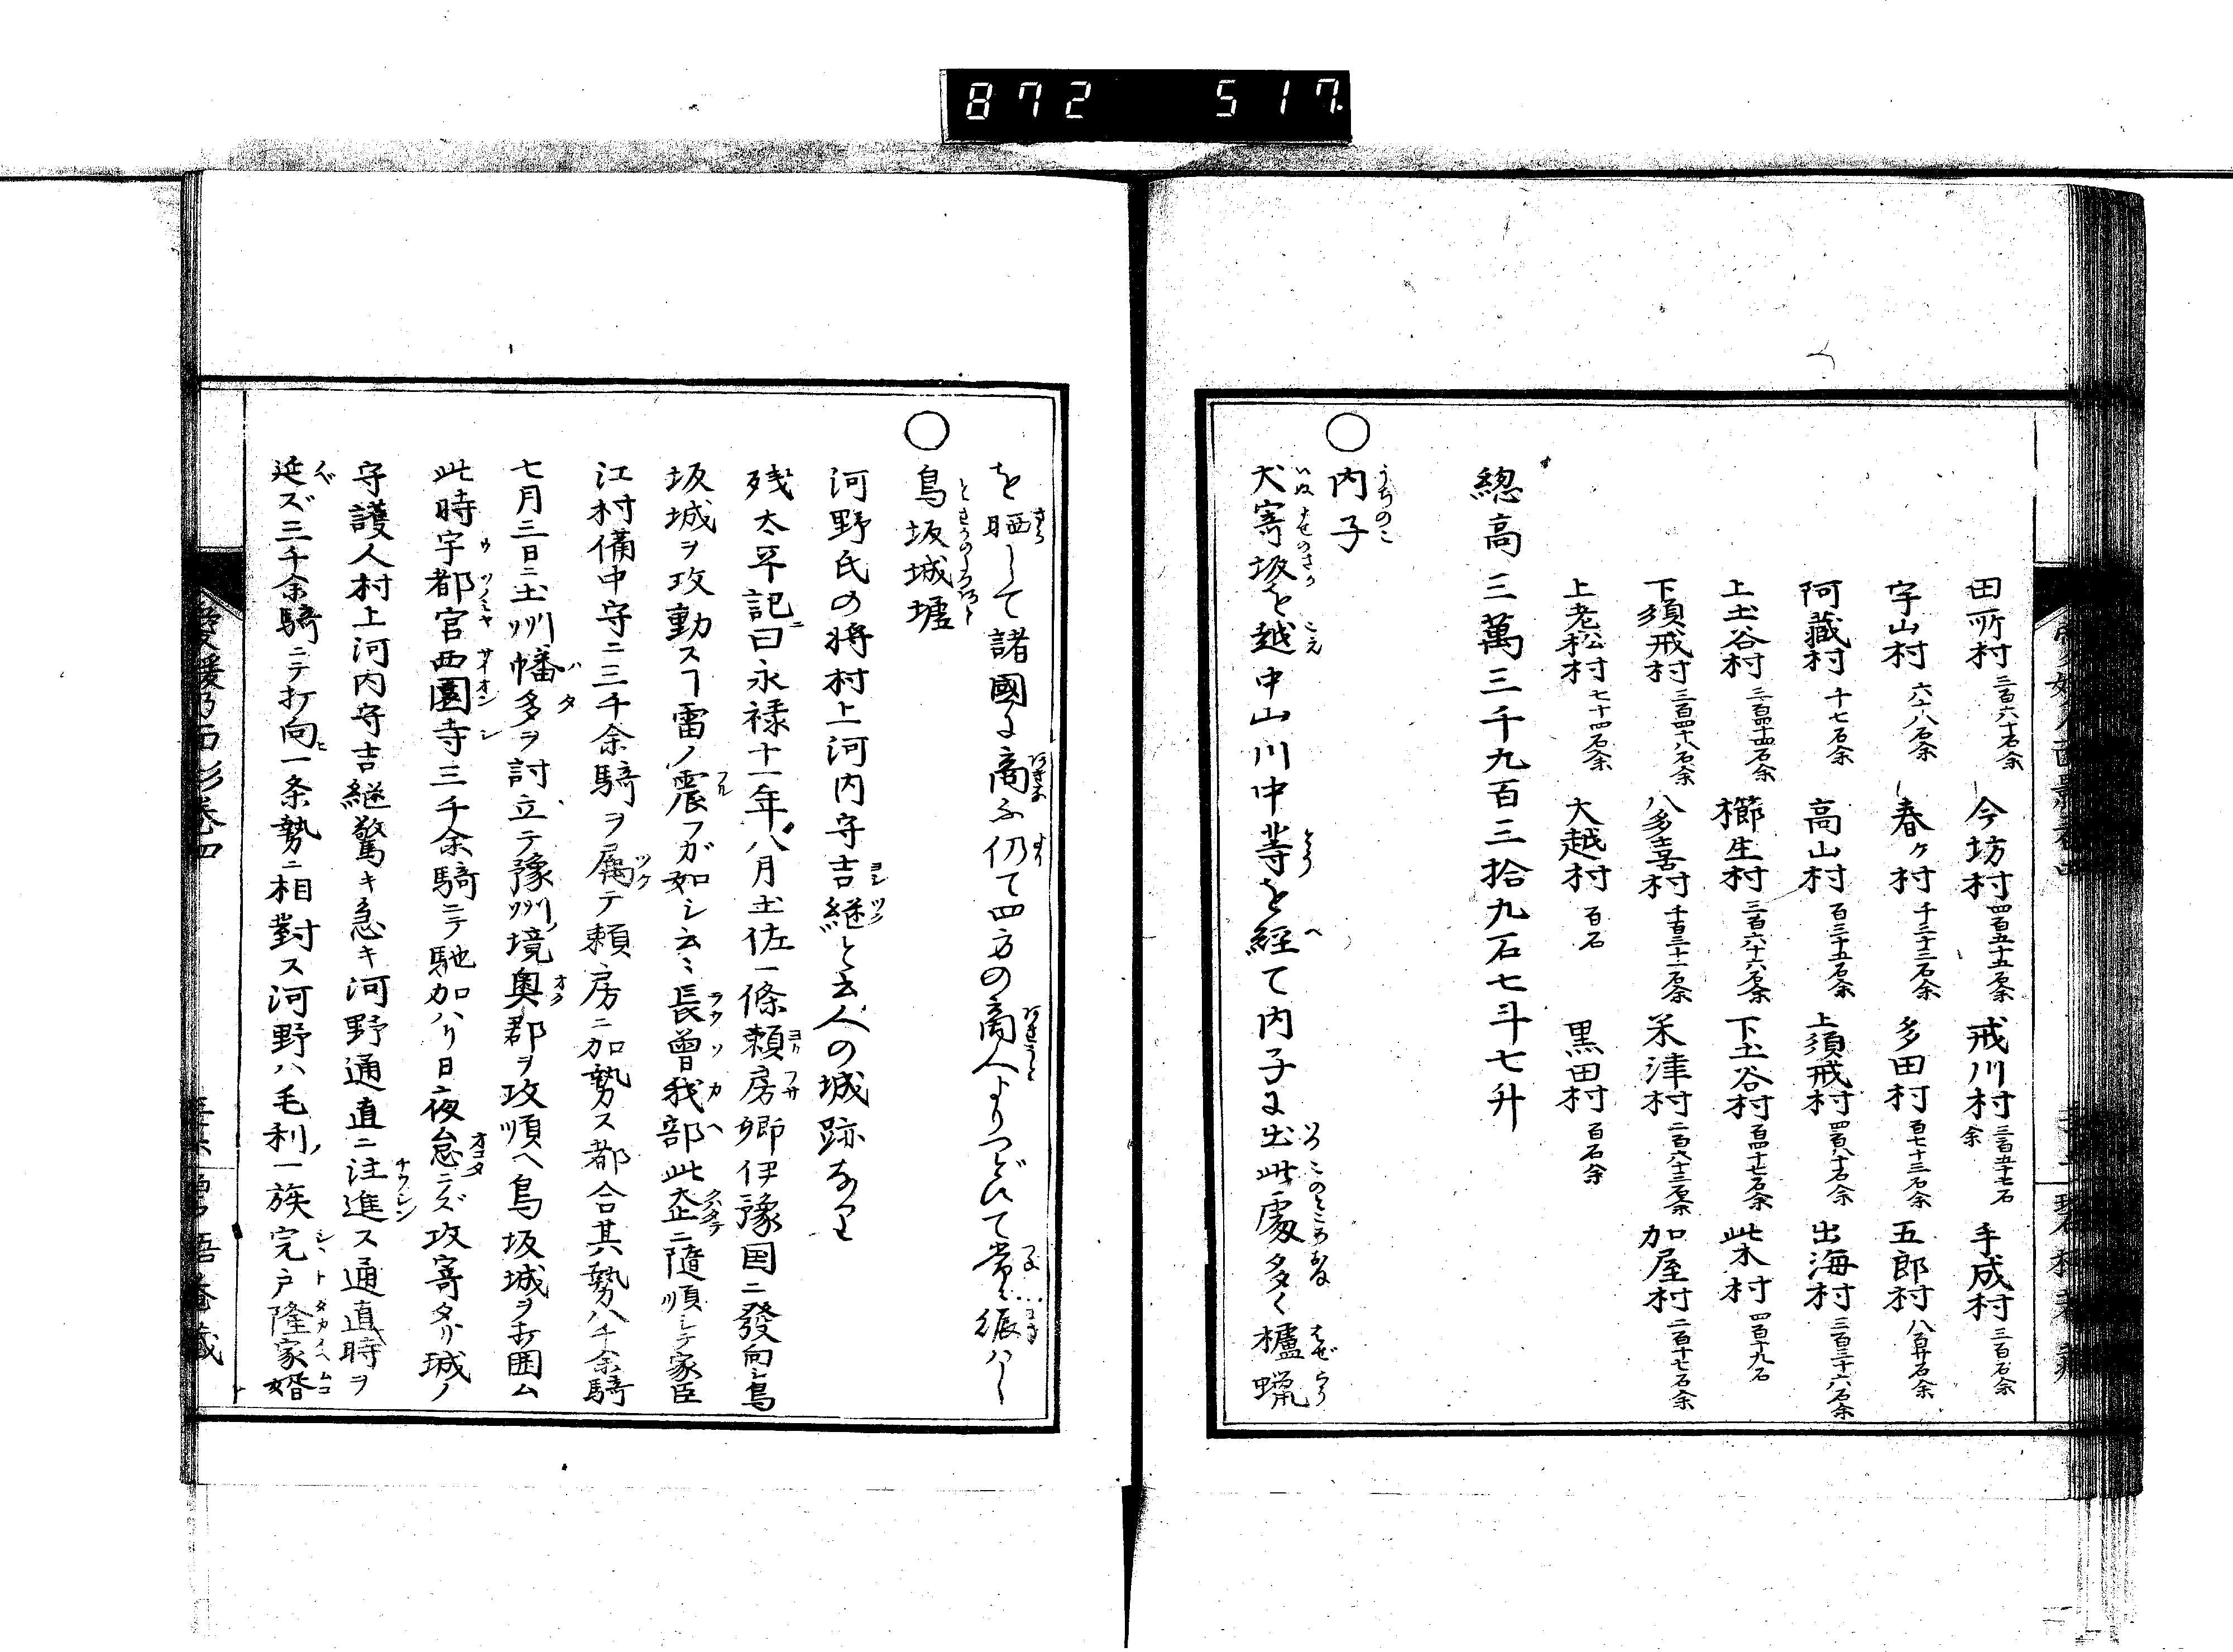 872 517
田所村 三百六十石余 今坊村 四百五十五石余 戒川村 三百五十七石余 手成村 三百石余
宇山村 六十八石余 春ケ村 千三十三石余 多田村 百七十三石余 五郎村 八百廾石余
阿藏村 十七石余 高山村 百三十五石余 上須戒村 四百八十石余 出海村 三百三十六石余
上土谷村 三百四十四石余 櫛生村 三百六十六石余 下土谷村 百四十七石余 柴村 四百十九石
下須戒村 三百四十八石余 八多喜村 千百三十一石余 米津村 二百六十三石余 加屋村 二百十七石余
上老松村 七十四石余 大越村 百石 黒田村 百石余
総高 三萬三千九百三拾九石七斗七升
○内子
犬寄坂を越中山川中等を経て内子に出此處多く櫨蝋
を晒して諸國に商ふ仍て四方の商人よりつどひて常に振はし
○鳥坂城墟
河野氏の将村上河内守吉継と云人の城跡なり
残太平記ニ曰永禄十一年八月土佐一條頼房卿伊豫国ニ發向シ鳥
坂城ヲ攻動スヿ雷ノ震フガ如シ云〻長曽我部此企ニ隨順シテ家臣
江村備中守ニ三千余騎ヲ属テ頼房ニ加勢ス都合其勢八千余騎
七月三日ニ土州幡多ヲ討立テ豫州境奥郡ヲ攻順ヘ鳥坂城ヲ打囲ム
此時宇都宮西園寺三千余騎ニテ馳加ハリ日夜怠ラズ攻寄タリ城ノ
守護人村上河内守吉継驚キ急キ河野通直ニ注進ス通直時ヲ
延ズ三千余騎ニテ打向ヒ一条勢ニ相對ス河野ハ毛利ノ一族完戸隆家婿
愛媛乃面影巻四